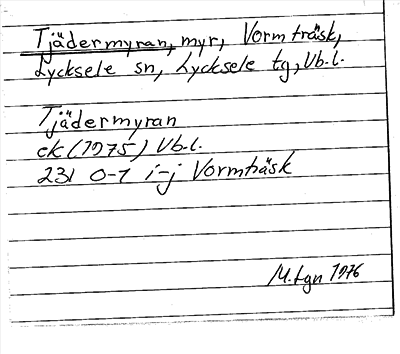 Tjädermyran, myr, Vormträsk,
Lycksele sn, Lycksele tg, Vb.l.
Tjädermyran
ek (1975) Vb.l.
231 0-1 i-j Vormträsk
M.tgn 1976